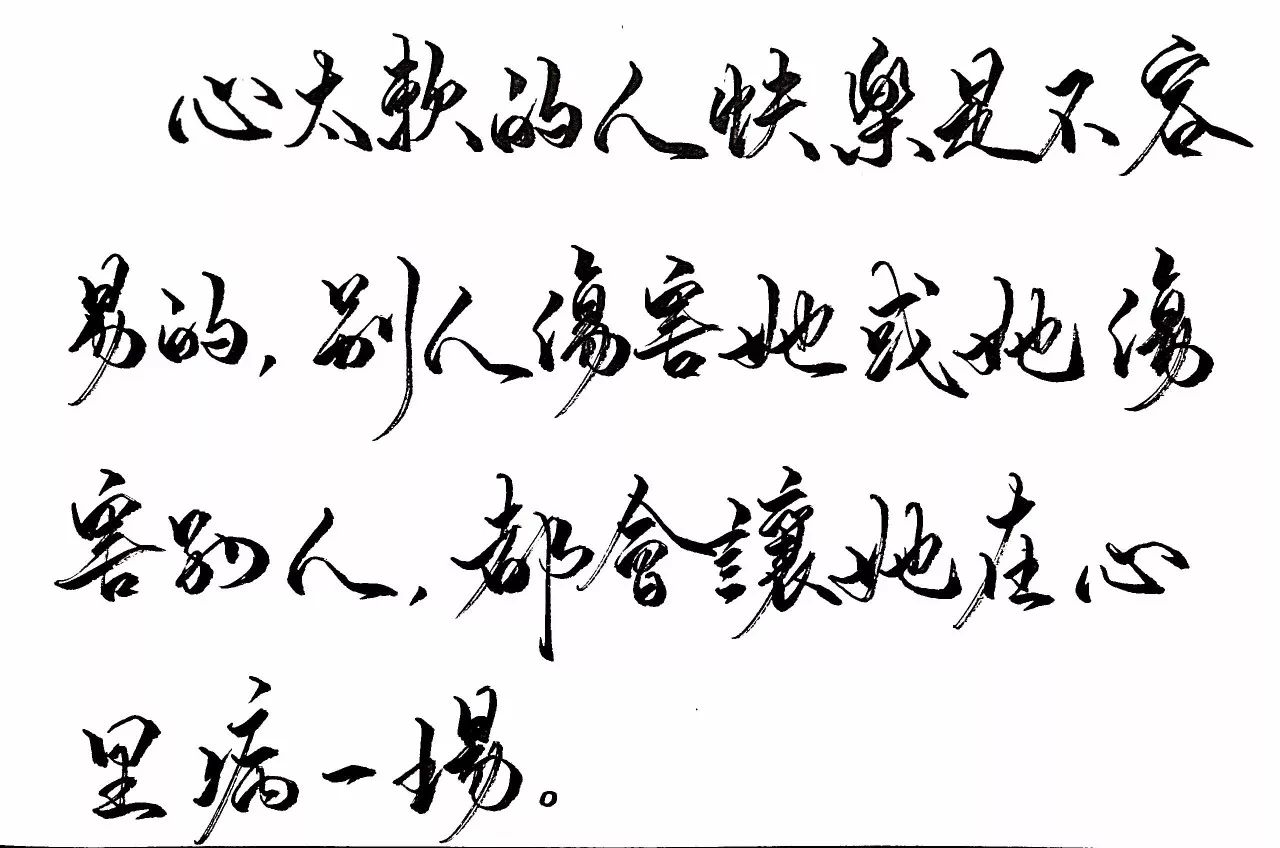 心太軟的人快樂是不容
易的，別人傷害她或她傷
害別人，都會讓她在心
里病一場。